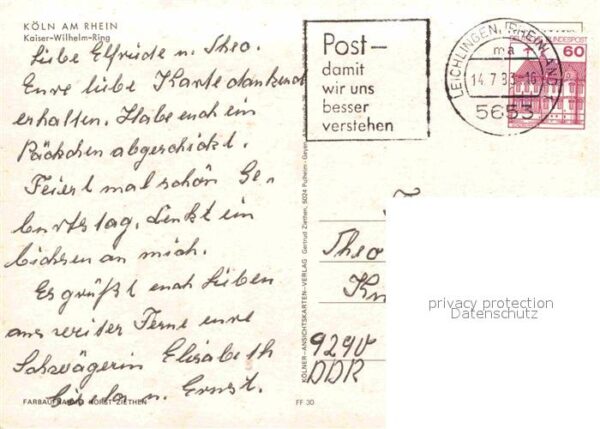 KÖLN AM RHEIN
Kaiser-Wilhelm-Ring
Liebe Elfriede u. Theo.
Eure liebe Karte dankend
erhalten. Habe euch ein
Päckchen abgeschickt.
Feiert mal schön Ge-
burtstag. Denkt ein
bichsen an mich.
Es grüßt euch Lieben
aus weiter Ferne eure
Schwägerin Elisabeth
u. Ernst.
FARBAUFNAHME HORST ZIETHEN
FF 30
KÖLNER-ANSICHTSKARTEN-VERLAG Gertrud Ziethen, 5024 Pulheim-Geyen
Post-
damit
wir uns
besser
verstehen
LEICHLINGEN, RHEINLAND 1
ma
14.7.83-16
5653
BUNDESPOST
60
Theo
9290
DDR
privacy protection
Datenschutz